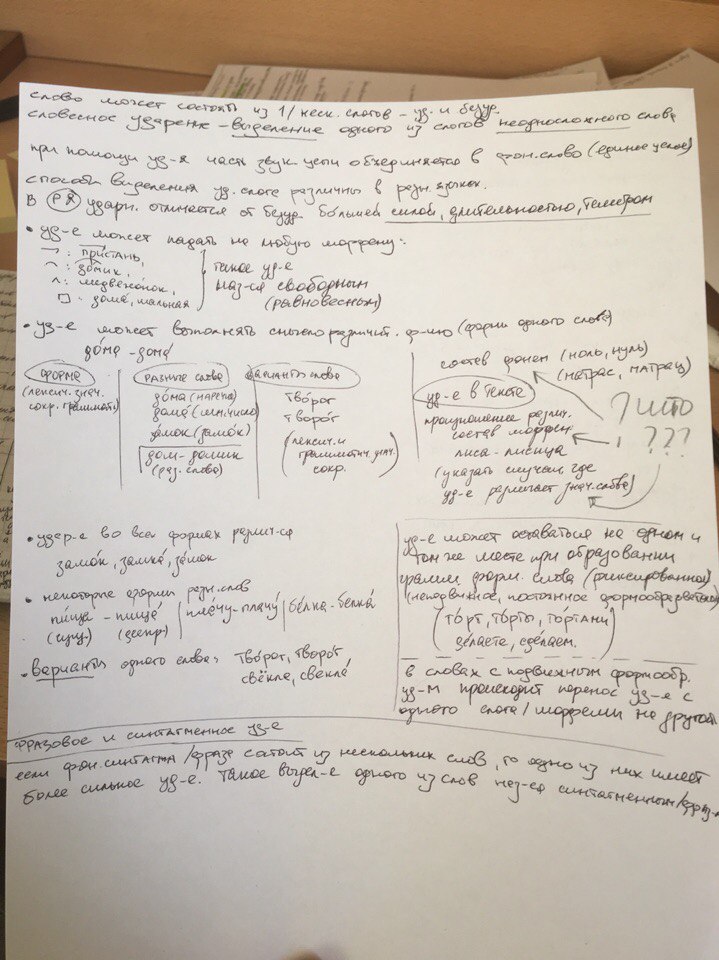 слово может состоять из 1/неск. слогов – уд. и безуд.
словесное ударение – выделение одного из слогов неодносложного слова
при помощи уд-я часть звук. цепи объединяется в фон. слово (единое целое)
способы выделения уд. слога различны в разн. языках.
В РЯ ударн. отличается от безуд. бо́льшей силой, длительностью, тембром
• уд-е может падать на любую морфему:
¬ : при́стань,
⌒ : до́мик,
^ : медвежо́нок,
□ : дома́, шальна́я
такое уд-е
наз-ся свободным
(разноместным)
• уд-е может выполнять смыслоразличит. ф-ию (формы одного слова)
до́ма – дома́
форма
(лексич. знач.
сохр. граммат.)
разные слова
до́ма (наречие)
дома́ (мн. число)
за́мок (замо́к)
дом – домик
(раз. слова)
варианты слова
тво́рог
творо́г
(лексич. и
грамматич. знач.
сохр.
состав фонем (ноль, нуль)
(матрас, матрац)
уд-е в тексте
произношение различ.
состав морфем
лиса – лисица
(указать случаи, где
уд-е различает знач. слова)
? что
???
• удар-е во всех формах различ-ся
замо́к, замка́, за́мок
• некоторые формы разн. слов
пи́ща – пища́
(сущ.) (деепр.)
пла́чу – плачу́
бе́лка – белка́
• варианты одного слова: тво́рог, творо́г
свёкла, свекла́
уд-е может оставаться на одном и
том же месте при образовании
грамм. форм. слова (фиксированное)
(неподвижное, постоянное формообразовательн.)
(то́рт, то́рты, то́ртами
де́лаете, сде́лаем.)
в словах с подвижным формообр.
уд-м происходит перенос уд-е с
одного слога/морфемы на другой
фразовое и синтагменное уд-е
если фон. синтагма/фраза состоит из нескольких слов, то одно из них имеет
более сильное уд-е. Такое выдел-е одного из слов наз-ся синтагменным/фраз-м